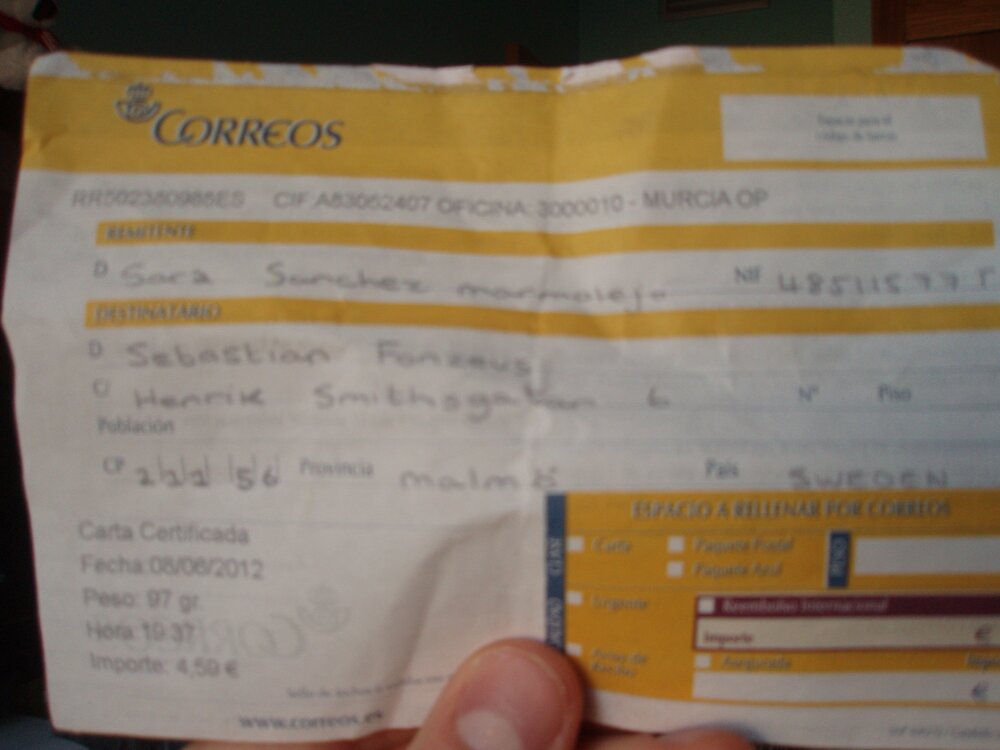 CORREOS
Espacio para el
código de barras
RR502380985ES CIF:A83052407 OFICINA: 3000010 - MURCIA OP
REMITENTE
D Sara Sanchez marmolejo NIF 48511577
DESTINATARIO
D Sebastian Fonzeus
C/ Henrik Smithsgatan 6 Nº Piso
Población
CP 211 56 Provincia malmö País SWEDEN
ESPACIO A RELLENAR POR CORREOS
Carta Certificada
Fecha:08/06/2012
Peso: 97 gr.
Hora 19:37
Importe: 4,59 €
Carta
Paquete Postal
Paquete Azul
PESO
Urgente
Reembolso Internacional
Importe €
Aviso de
Recibo
Asegurado
€
www.correos.es